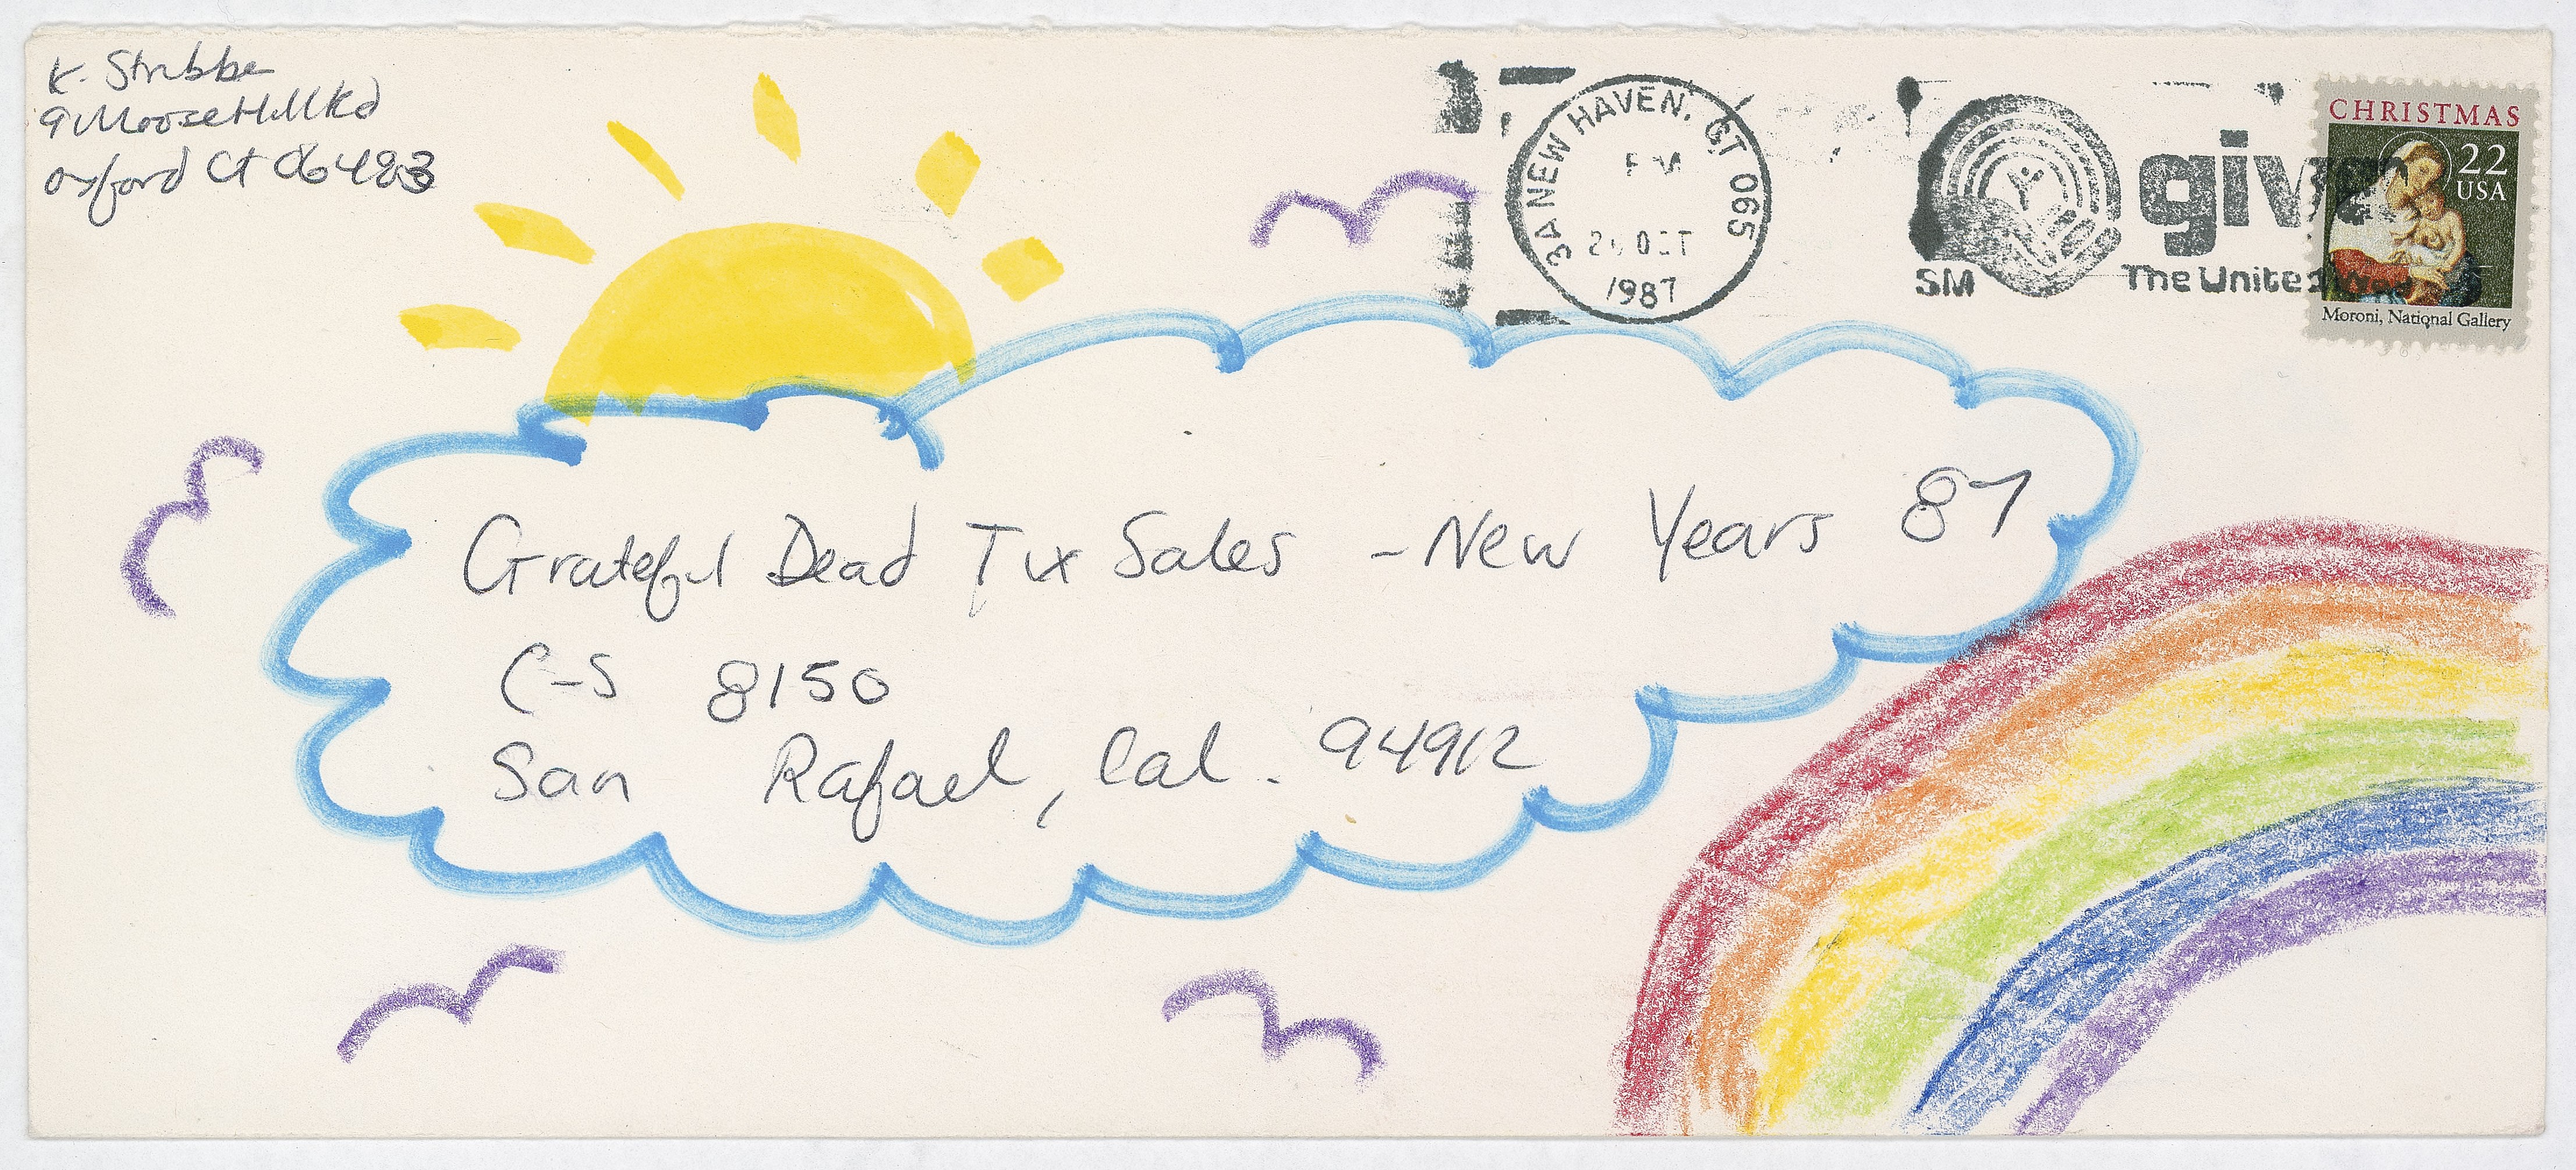 K. Stribbe
9 Moose Hill Rd
Oxford Ct 06483
3A NEW HAVEN, CT 065
PM
OCT
1987
give
SM
The United Way
CHRISTMAS
22
USA
Moroni, National Gallery
Grateful Dead Tix Sales - New Years 87
C-S 8150
San Rafael, Cal. 94912